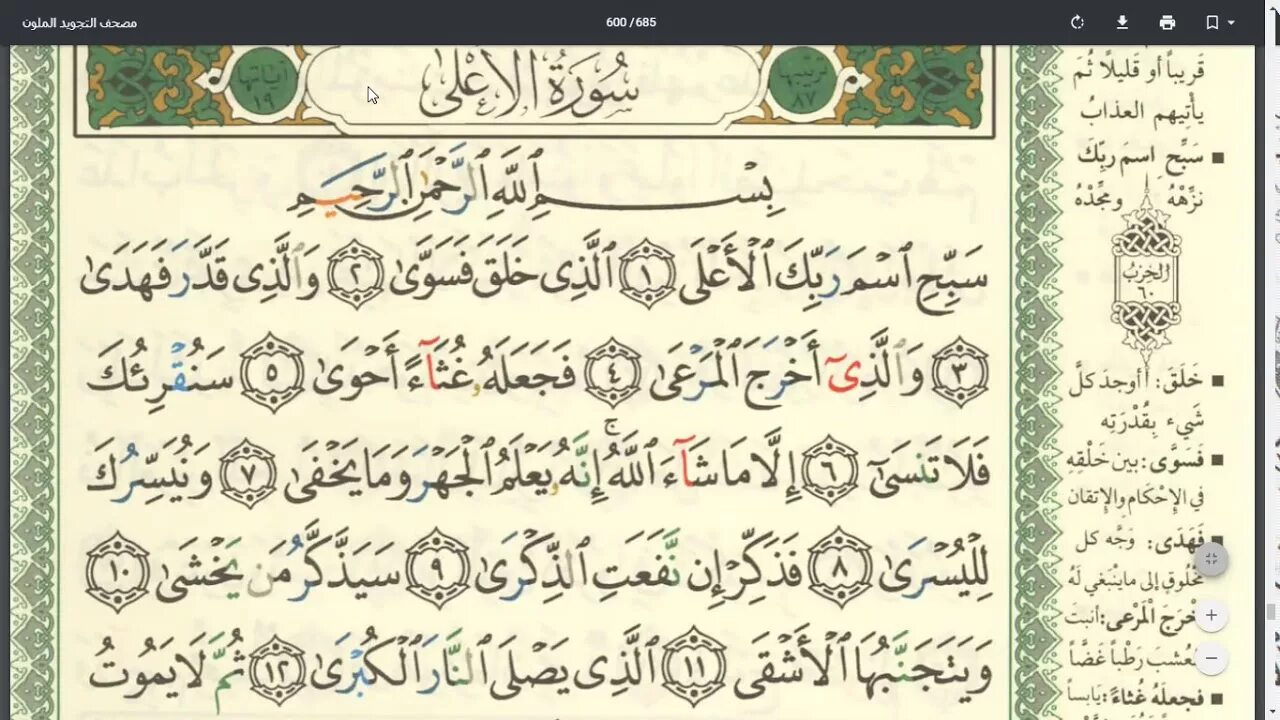 مصحف التجويد الملون
600 / 685
آياتها ١٩
سُورَةُ الأَعْلَى
ترتيبها ٨٧
بِسْمِ ٱللَّهِ ٱلرَّحْمَٰنِ ٱلرَّحِيمِ
سَبِّحِ ٱسْمَ رَبِّكَ ٱلْأَعْلَى ١ ٱلَّذِى خَلَقَ فَسَوَّىٰ ٢ وَٱلَّذِى قَدَّرَ فَهَدَىٰ
٣ وَٱلَّذِىٓ أَخْرَجَ ٱلْمَرْعَىٰ ٤ فَجَعَلَهُۥ غُثَآءً أَحْوَىٰ ٥ سَنُقْرِئُكَ
فَلَا تَنسَىٰٓ ٦ إِلَّا مَا شَآءَ ٱللَّهُ ۚ إِنَّهُۥ يَعْلَمُ ٱلْجَهْرَ وَمَا يَخْفَىٰ ٧ وَنُيَسِّرُكَ
لِلْيُسْرَىٰ ٨ فَذَكِّرْ إِن نَّفَعَتِ ٱلذِّكْرَىٰ ٩ سَيَذَّكَّرُ مَن يَخْشَىٰ ١٠
وَيَتَجَنَّبُهَا ٱلْأَشْقَى ١١ ٱلَّذِى يَصْلَى ٱلنَّارَ ٱلْكُبْرَىٰ ١٢ ثُمَّ لَا يَمُوتُ
قَرِيباً أو قليلًا ثُم
يأتيهم العذابُ
سَبِّحِ اسمَ ربِّكَ
نَزِّهْهُ ومَجِّدْهُ
الحِزبُ
٦٠
خَلَقَ: أوجدَ كلَّ
شيء بِقُدْرَتِه
فَسَوَّى: بين خَلْقِهِ
في الإِحْكام والإِتقان
فَهَدَى: وَجَّه كل
مَخْلُوقٍ إلى ما ينْبَغي لَهُ
خْرَجَ الْمَرْعى: أنبتَ
لعُشبَ رَطْباً غَضًّا
فجعلَهُ غُثاءً: يَابساً